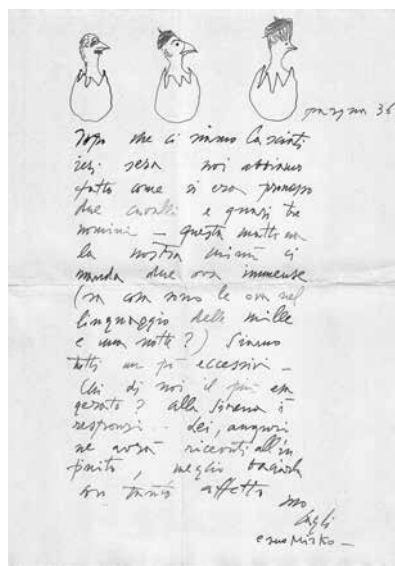 pasqua 36
dopo che ci siamo lasciati
ieri sera noi abbiamo
fatto come si era promesso
due cavalli e quasi tre
uomini — questa mattina
la nostra Mimì ci
manda due ova immense
(sa cosa sono le ova nel
linguaggio delle mille
e una notte?) Siamo
tutti un po' eccessivi —
Chi di noi il più esa
gerato? alla Sirena i
responsi — Lei, auguri
ne avrà ricevuti all'in
finito, meglio baciarla
con tanto affetto
suo
Cagli
e suo Mirko —